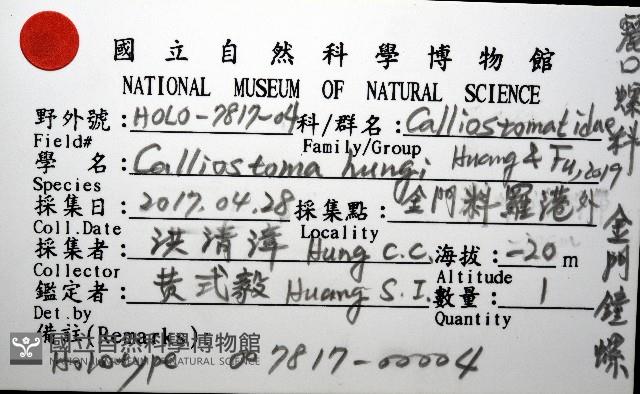 國立自然科學博物館
NATIONAL MUSEUM OF NATURAL SCIENCE
野外號: HOLO-7817-04 科/群名: Calliostomatidae
Field# Family/Group
學 名: Calliostoma hungi Huang & Fu, 2019
Species
採集日: 2017.04.28 採集點: 金門料羅港外
Coll.Date Locality
採集者: 洪清漳 Hung C.C. 海拔: -20 m
Collector Altitude
鑑定者: 黄式毅 Huang S.I. 數量: 1
Det.by Quantity
備註(Remarks)
Holotype 007817-00004
麗口螺科 金門鐘螺
國立自然科學博物館
NATIONAL MUSEUM OF NATURAL SCIENCE